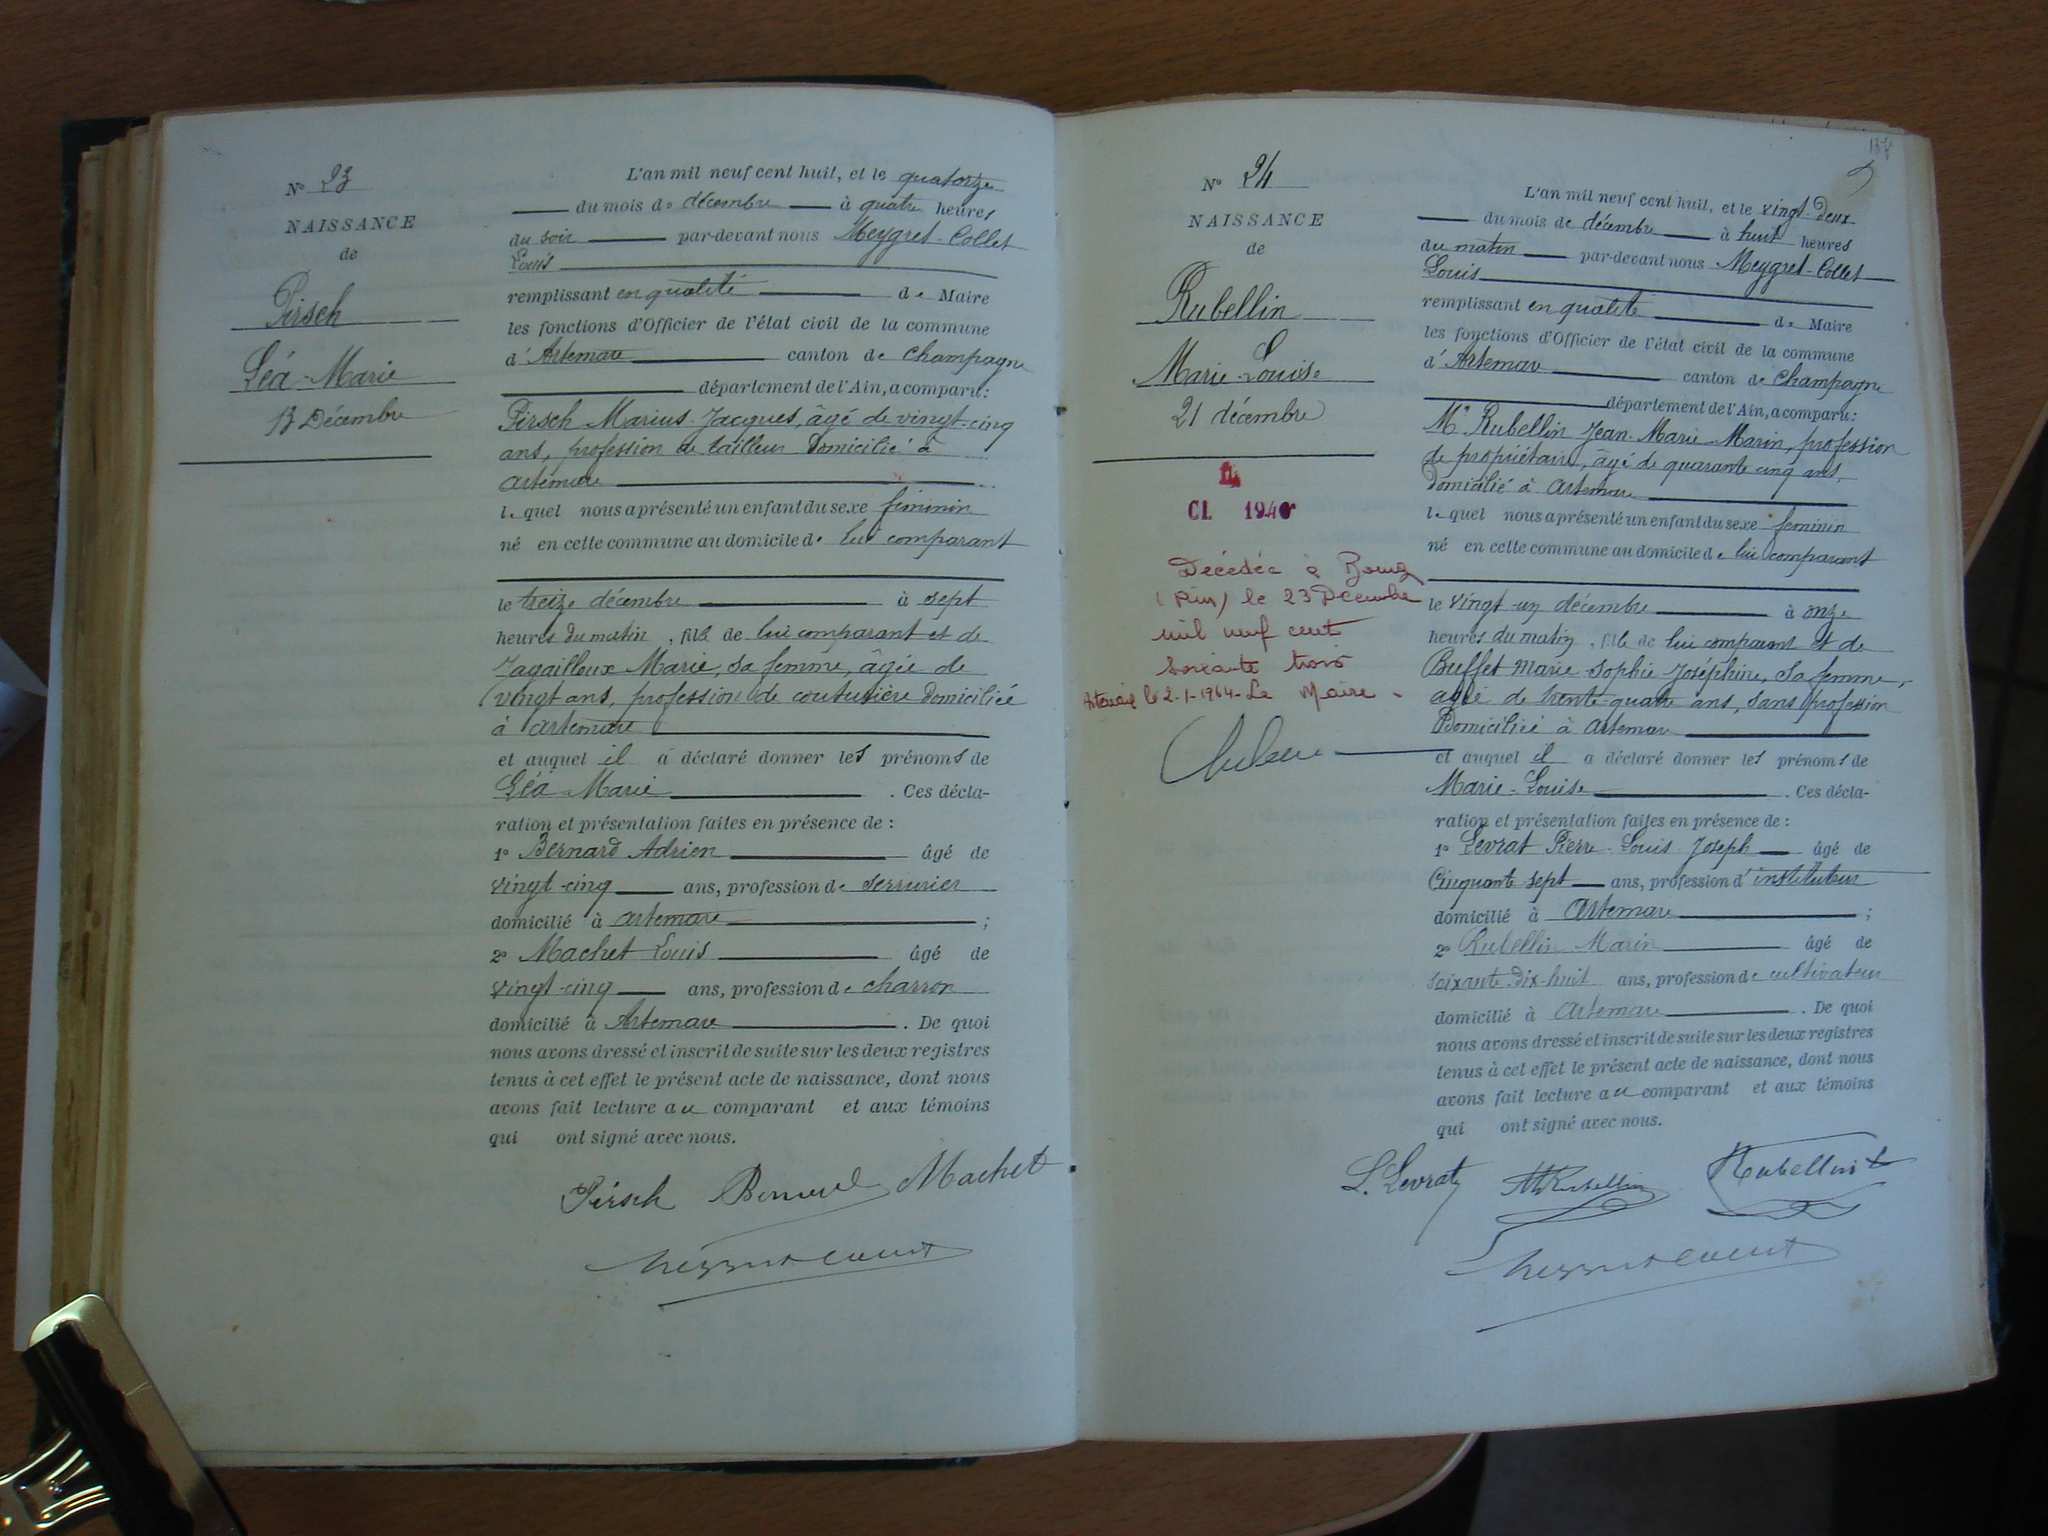 N° 23
NAISSANCE
de
Pirsch
Léa-Marie
13 Décembre
L'an mil neuf cent huit, et le quatorze
du mois de décembre à quatre heures
du soir par-devant nous Meygret-Collet
Louis
remplissant en qualité de Maire
les fonctions d'Officier de l'état civil de la commune
d'Artemare canton de Champagne
département de l'Ain, a comparu:
Pirsch Marius-Jacques, âgé de vingt-cinq
ans, profession de tailleur domicilié à
Artemare
lequel nous a présenté un enfant du sexe féminin
né en cette commune au domicile de lui comparant
le treize décembre à sept
heures du matin, fille de lui comparant et de
Marie, sa femme, âgée de
vingt ans, profession de couturière domiciliée
à Artemare
et auquel il a déclaré donner les prénoms de
Léa-Marie . Ces décla-
ration et présentation faites en présence de :
1° Bernard Adrien âgé de
vingt-cinq ans, profession de serrurier
domicilié à Artemare ;
2° Machet Louis âgé de
vingt-cinq ans, profession de charron
domicilié à Artemare . De quoi
nous avons dressé et inscrit de suite sur les deux registres
tenus à cet effet le présent acte de naissance, dont nous
avons fait lecture au comparant et aux témoins
qui ont signé avec nous.
Pirsch Bernard Machet
N° 24
NAISSANCE
de
Rubellin
Marie-Louise
21 décembre
Cl. 1940
Décédée à Bourg
(Ain) le 23 Décembre
mil neuf cent
soixante trois
Artemare le 2-1-1964 - Le Maire -
L'an mil neuf cent huit, et le vingt-deux
du mois de décembre à huit heures
du matin par-devant nous Meygret-Collet
Louis
remplissant en qualité de Maire
les fonctions d'Officier de l'état civil de la commune
d'Artemare canton de Champagne
département de l'Ain, a comparu:
Mr Rubellin Jean-Marie-Marin, profession
de propriétaire, âgé de quarante cinq ans,
domicilié à Artemare
lequel nous a présenté un enfant du sexe féminin
né en cette commune au domicile de lui comparant
le vingt-un décembre à onze
heures du matin, fille de lui comparant et de
Buffet Marie Sophie Joséphine, sa femme,
agée de trente-quatre ans, sans profession
domiciliée à Artemare
et auquel il a déclaré donner les prénoms de
Marie-Louise . Ces décla-
ration et présentation faites en présence de :
1° Levrat Pierre-Louis Joseph âgé de
cinquante sept ans, profession d'instituteur
domicilié à Artemare ;
2° Rubellin Marin âgé de
soixante-dix-huit ans, profession de cultivateur
domicilié à Artemare . De quoi
nous avons dressé et inscrit de suite sur les deux registres
tenus à cet effet le présent acte de naissance, dont nous
avons fait lecture au comparant et aux témoins
qui ont signé avec nous.
L. Levrat Rubellin Rubellin